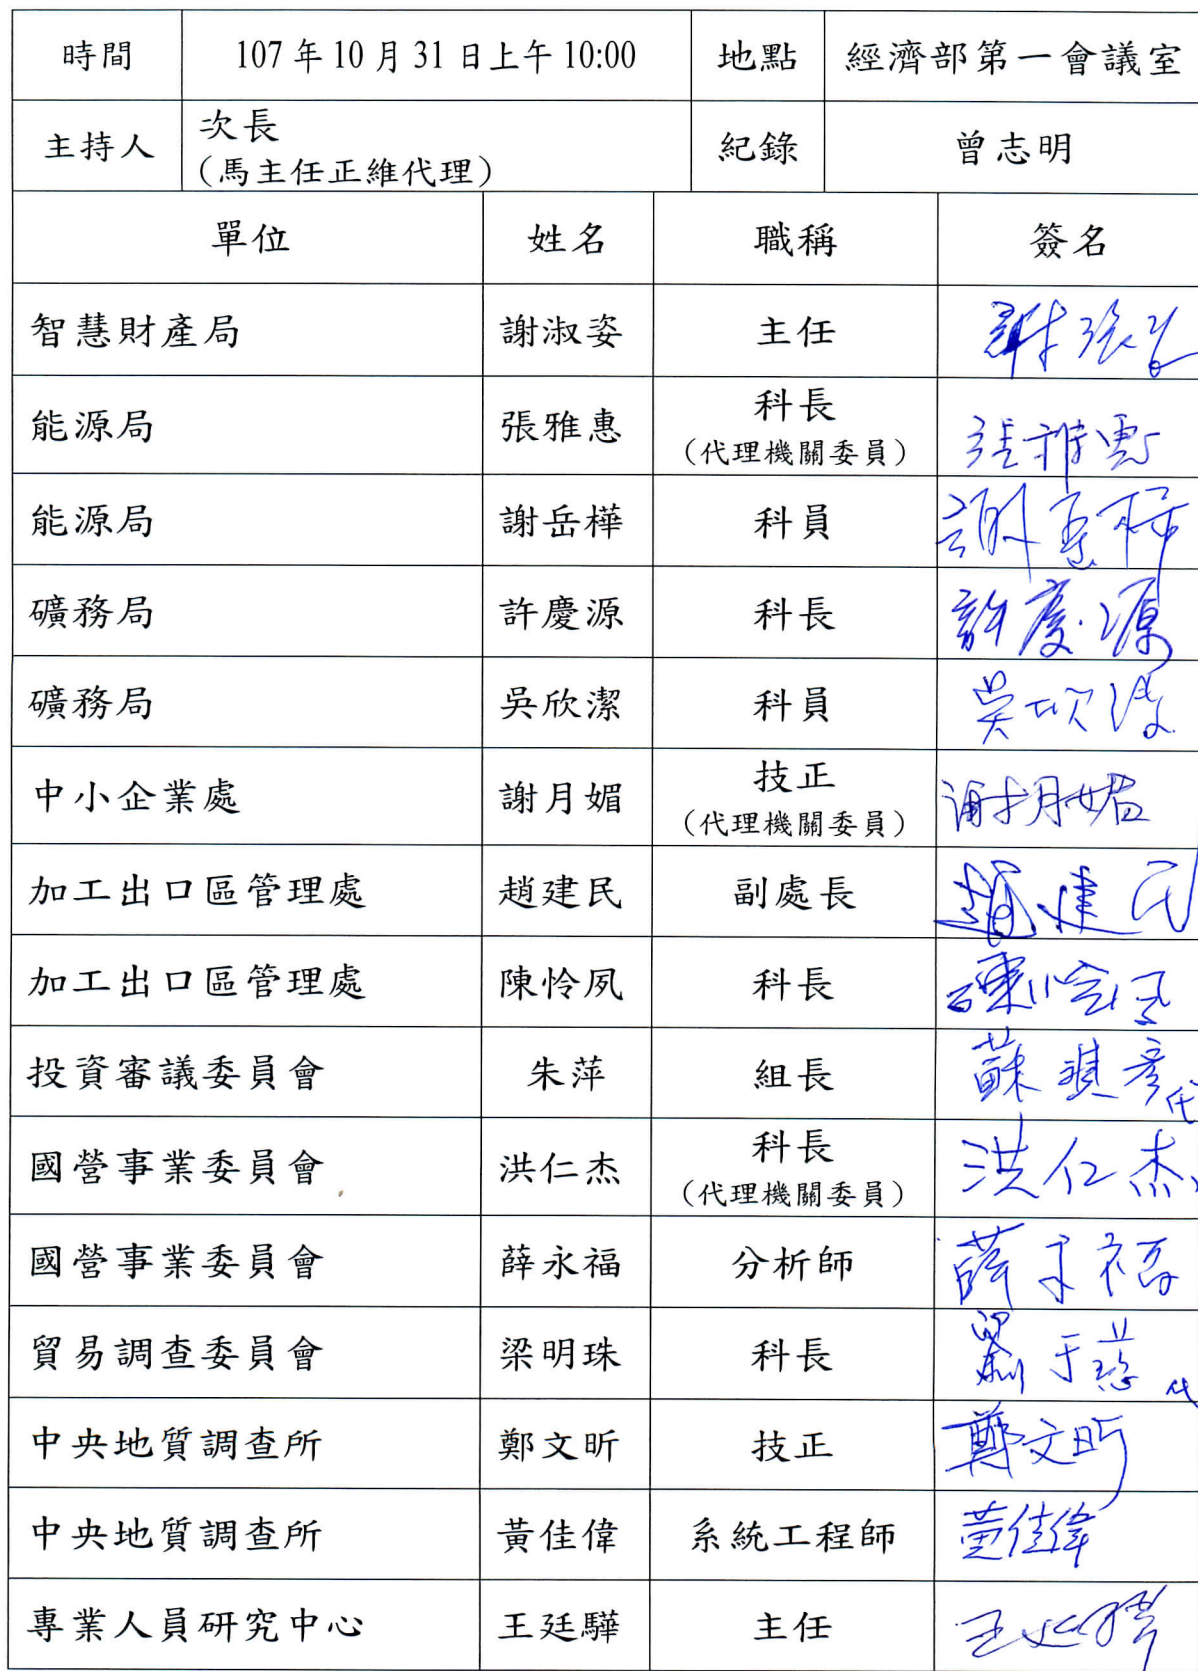 時間 107年10月31日上午10:00 地點 經濟部第一會議室
主持人 次長
(馬主任正維代理) 紀錄 曾志明
單位 姓名 職稱 簽名
智慧財產局 謝淑姿 主任
能源局 張雅惠 科長
(代理機關委員) 張雅惠
能源局 謝岳樺 科員 謝岳樺
礦務局 許慶源 科長 許慶源
礦務局 吳欣潔 科員 吳欣潔
中小企業處 謝月媚 技正
(代理機關委員) 謝月媚
加工出口區管理處 趙建民 副處長 趙建民
加工出口區管理處 陳怜夙 科長 陳怜夙
投資審議委員會 朱萍 組長 蘇琪彥代
國營事業委員會 洪仁杰 科長
(代理機關委員) 洪仁杰
國營事業委員會 薛永福 分析師 薛永福
貿易調查委員會 梁明珠 科長 代
中央地質調查所 鄭文昕 技正 鄭文昕
中央地質調查所 黃佳偉 系統工程師 黃佳偉
專業人員研究中心 王廷驊 主任 王廷驊